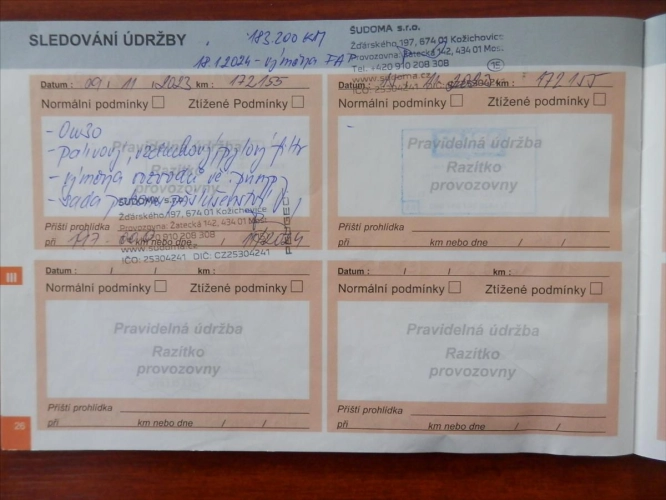 SLEDOVÁNÍ ÚDRŽBY
183.200 KM
18.1.2024 - výměna FAP
SUDOMA s.r.o.
Žďárského 197, 674 01 Kožichovice
Provozovna: Žatecká 142, 434 01 Most
Tel. +420 910 208 30B
www.sudoma.cz
Datum : 09 / 11 / 2023 km : 172155
Normální podmínky Ztížené Podmínky
- 0W30
- palivový, vzduchový, pylový filtr
- výměna rozvodů vč. pumpy
- Sada
Pravidelná údržba
Razítko
provozovny
SUDOMA s.r.o.
Žďárského 197, 674 01 Kožichovice
Provozovna: Žatecká 142, 434 01 Most
910 208 30B
www.sudoma.cz
IČO: 25304241 DIČ: CZ25304241
Příští prohlídka
při km nebo dne
Datum : km : 172155
Normální podmínky Ztížené Podmínky
-
Pravidelná údržba
Razítko
provozovny
Příští prohlídka
při km nebo dne / /
Datum : / / km :
Normální podmínky Ztížené Podmínky
Pravidelná údržba
Razítko
provozovny
Příští prohlídka
při km nebo dne / /
Datum : / / km :
Normální podmínky Ztížené Podmínky
Pravidelná údržba
Razítko
provozovny
Příští prohlídka
při km nebo dne / /
III
26